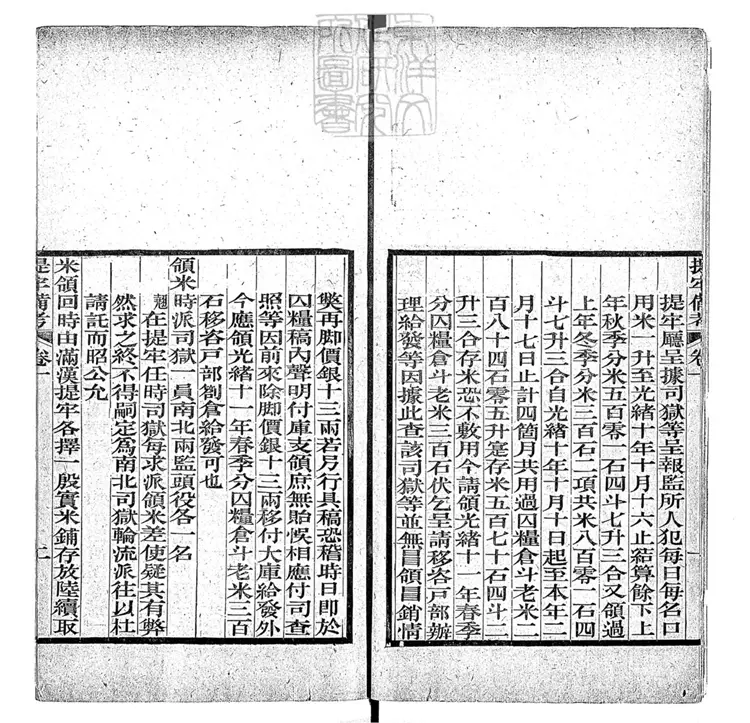 東洋文
化研究
所圖書
提牢備考 卷一
提牢廳呈據司獄等呈報監所人犯每日每名口
用米一升至光緒十年十月十六止結算餘下上
年秋季分米五百零一石四斗七升三合又領過
上年冬季分米三百石二項共米八百零一石四
斗七升三合自光緒十年十月十日起至本年二
月十七日止計四箇月共用過囚糧倉斗老米二
百八十四石零五升寔存米五百七十石四斗二
升三合存米恐不敷用今請領光緒十一年春季
分囚糧倉斗老米三百石伏乞呈請移咨戸部辦
理給發等因據此查該司獄等並無冒領冒銷情
獘再脚價銀十三兩若另行具稿恐稽時日即於
囚糧稿內聲明付庫支領庶無貽悞相應付司查
照等因前來除脚價銀十三兩移付大庫給發外
今應領光緒十一年春季分囚糧倉斗老米三百
石移咨戸部劄倉給發可也
領米時派司獄一員南北兩監頭役各一名
翹在提牢任時司獄每求派領米差使疑其有弊
然求之終不得嗣定爲南北司獄輪流派往以杜
請託而昭公允
米領回時由滿漢提牢各擇一殷實米鋪存放陸續取
提牢備考 卷一 二